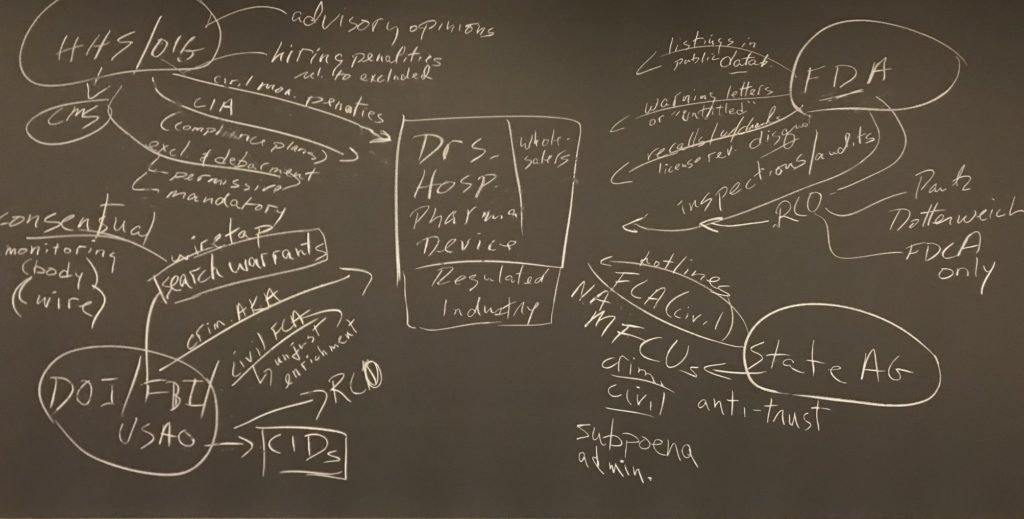 HHS/OIG
advisory opinions
hiring penalities
rel. to excluded
civil mon. penalties
CMS
CIA
(compliance plans)
excl & debarment
permissive
mandatory
consensual
monitoring
(body)
(wire)
wiretap
search warrants
crim AKA
civil FCA
unjust
enrichment
DOJ/FBI/
USAO
RCO
CIDs
Drs.
Hosp.
Pharma
Device
whole-
salers
Regulated
Industry
FDA
listings in
public datab.
warning letters
or "untitled"
recalls
license rev.
inspections/audits
RCO
Park
Dotterweich
FDCA
only
hotlines
FCA (civil)
NA
MFCUs
crim.
civil
subpoena
admin.
State AG
anti-trust